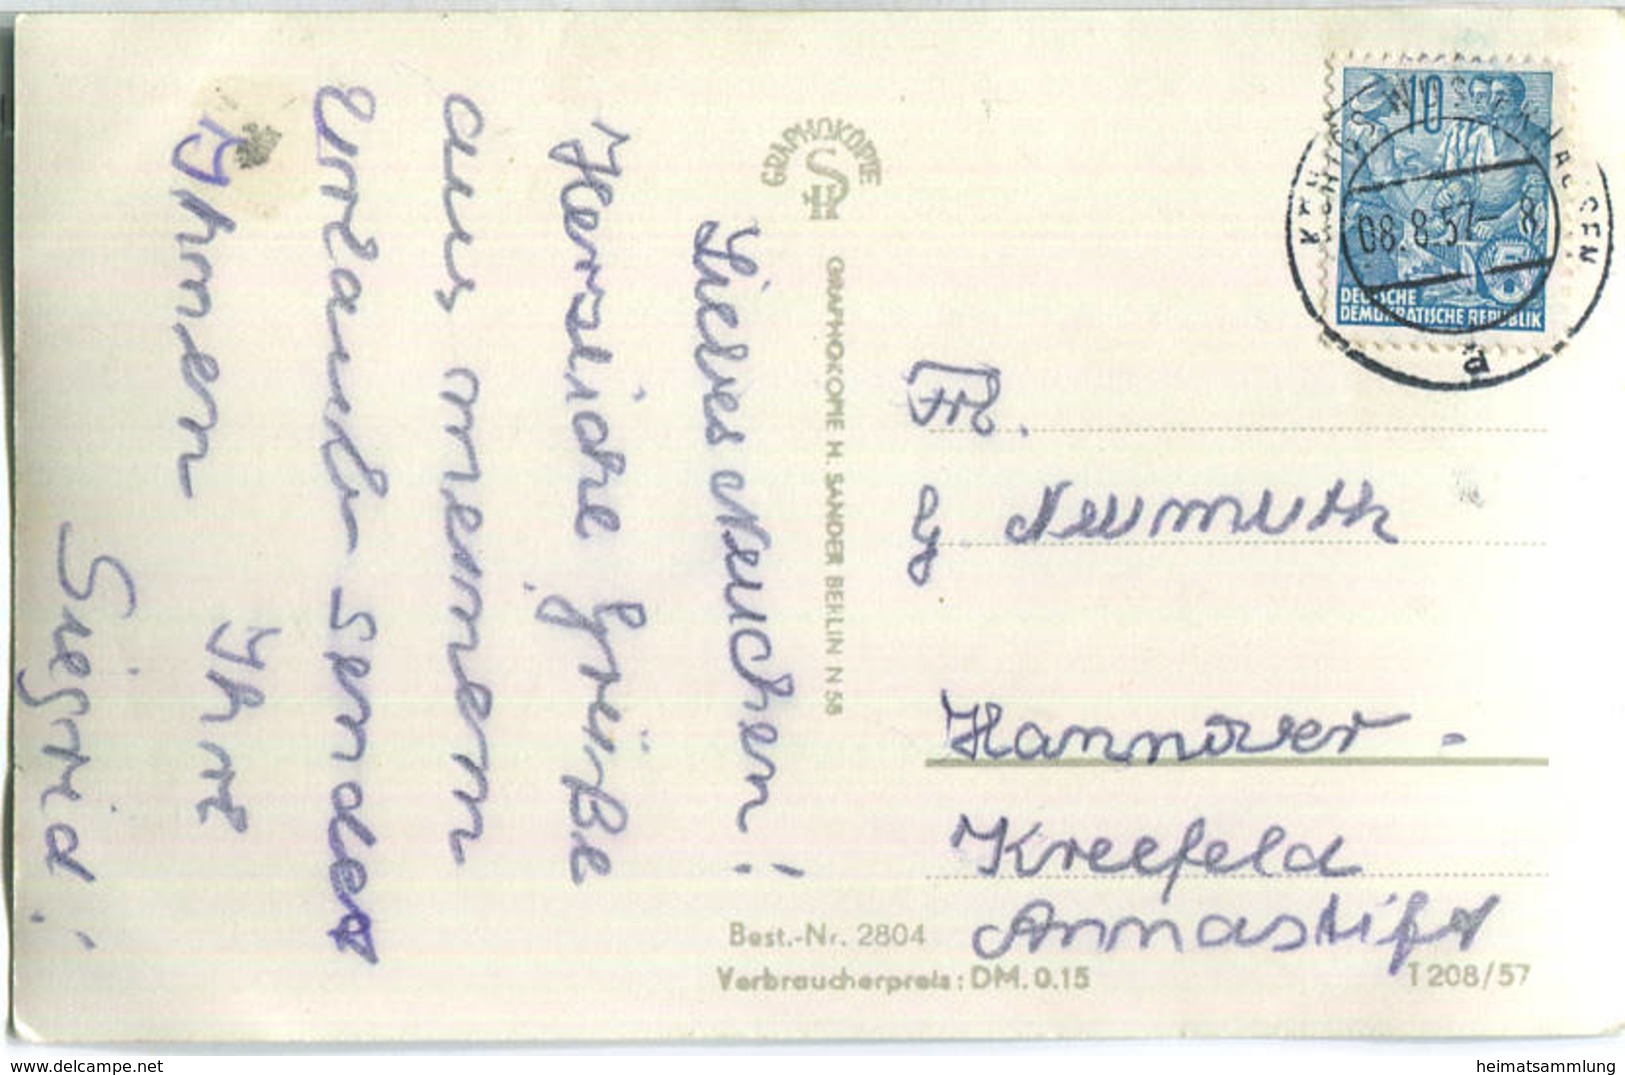 Liebes Neuchen!
Herzliche Grüße
aus meinem
Urlaub sendet
Ihnen
Ihre
Siegrid.
GRAPHOKOPIE
GRAPHOKOME H. SANDER BERLIN N 58
10
DEUTSCHE
DEMOKRATISCHE REPUBLIK
KÖNIGS WUSTERHAUSEN
08.8.57-8
d
Frl.
G. Neumuth
Hannover -
Kreefeld
Annastift
Best.-Nr. 2804
Verbraucherpreis: DM. 0.15
T 208/57
heimatsammlung